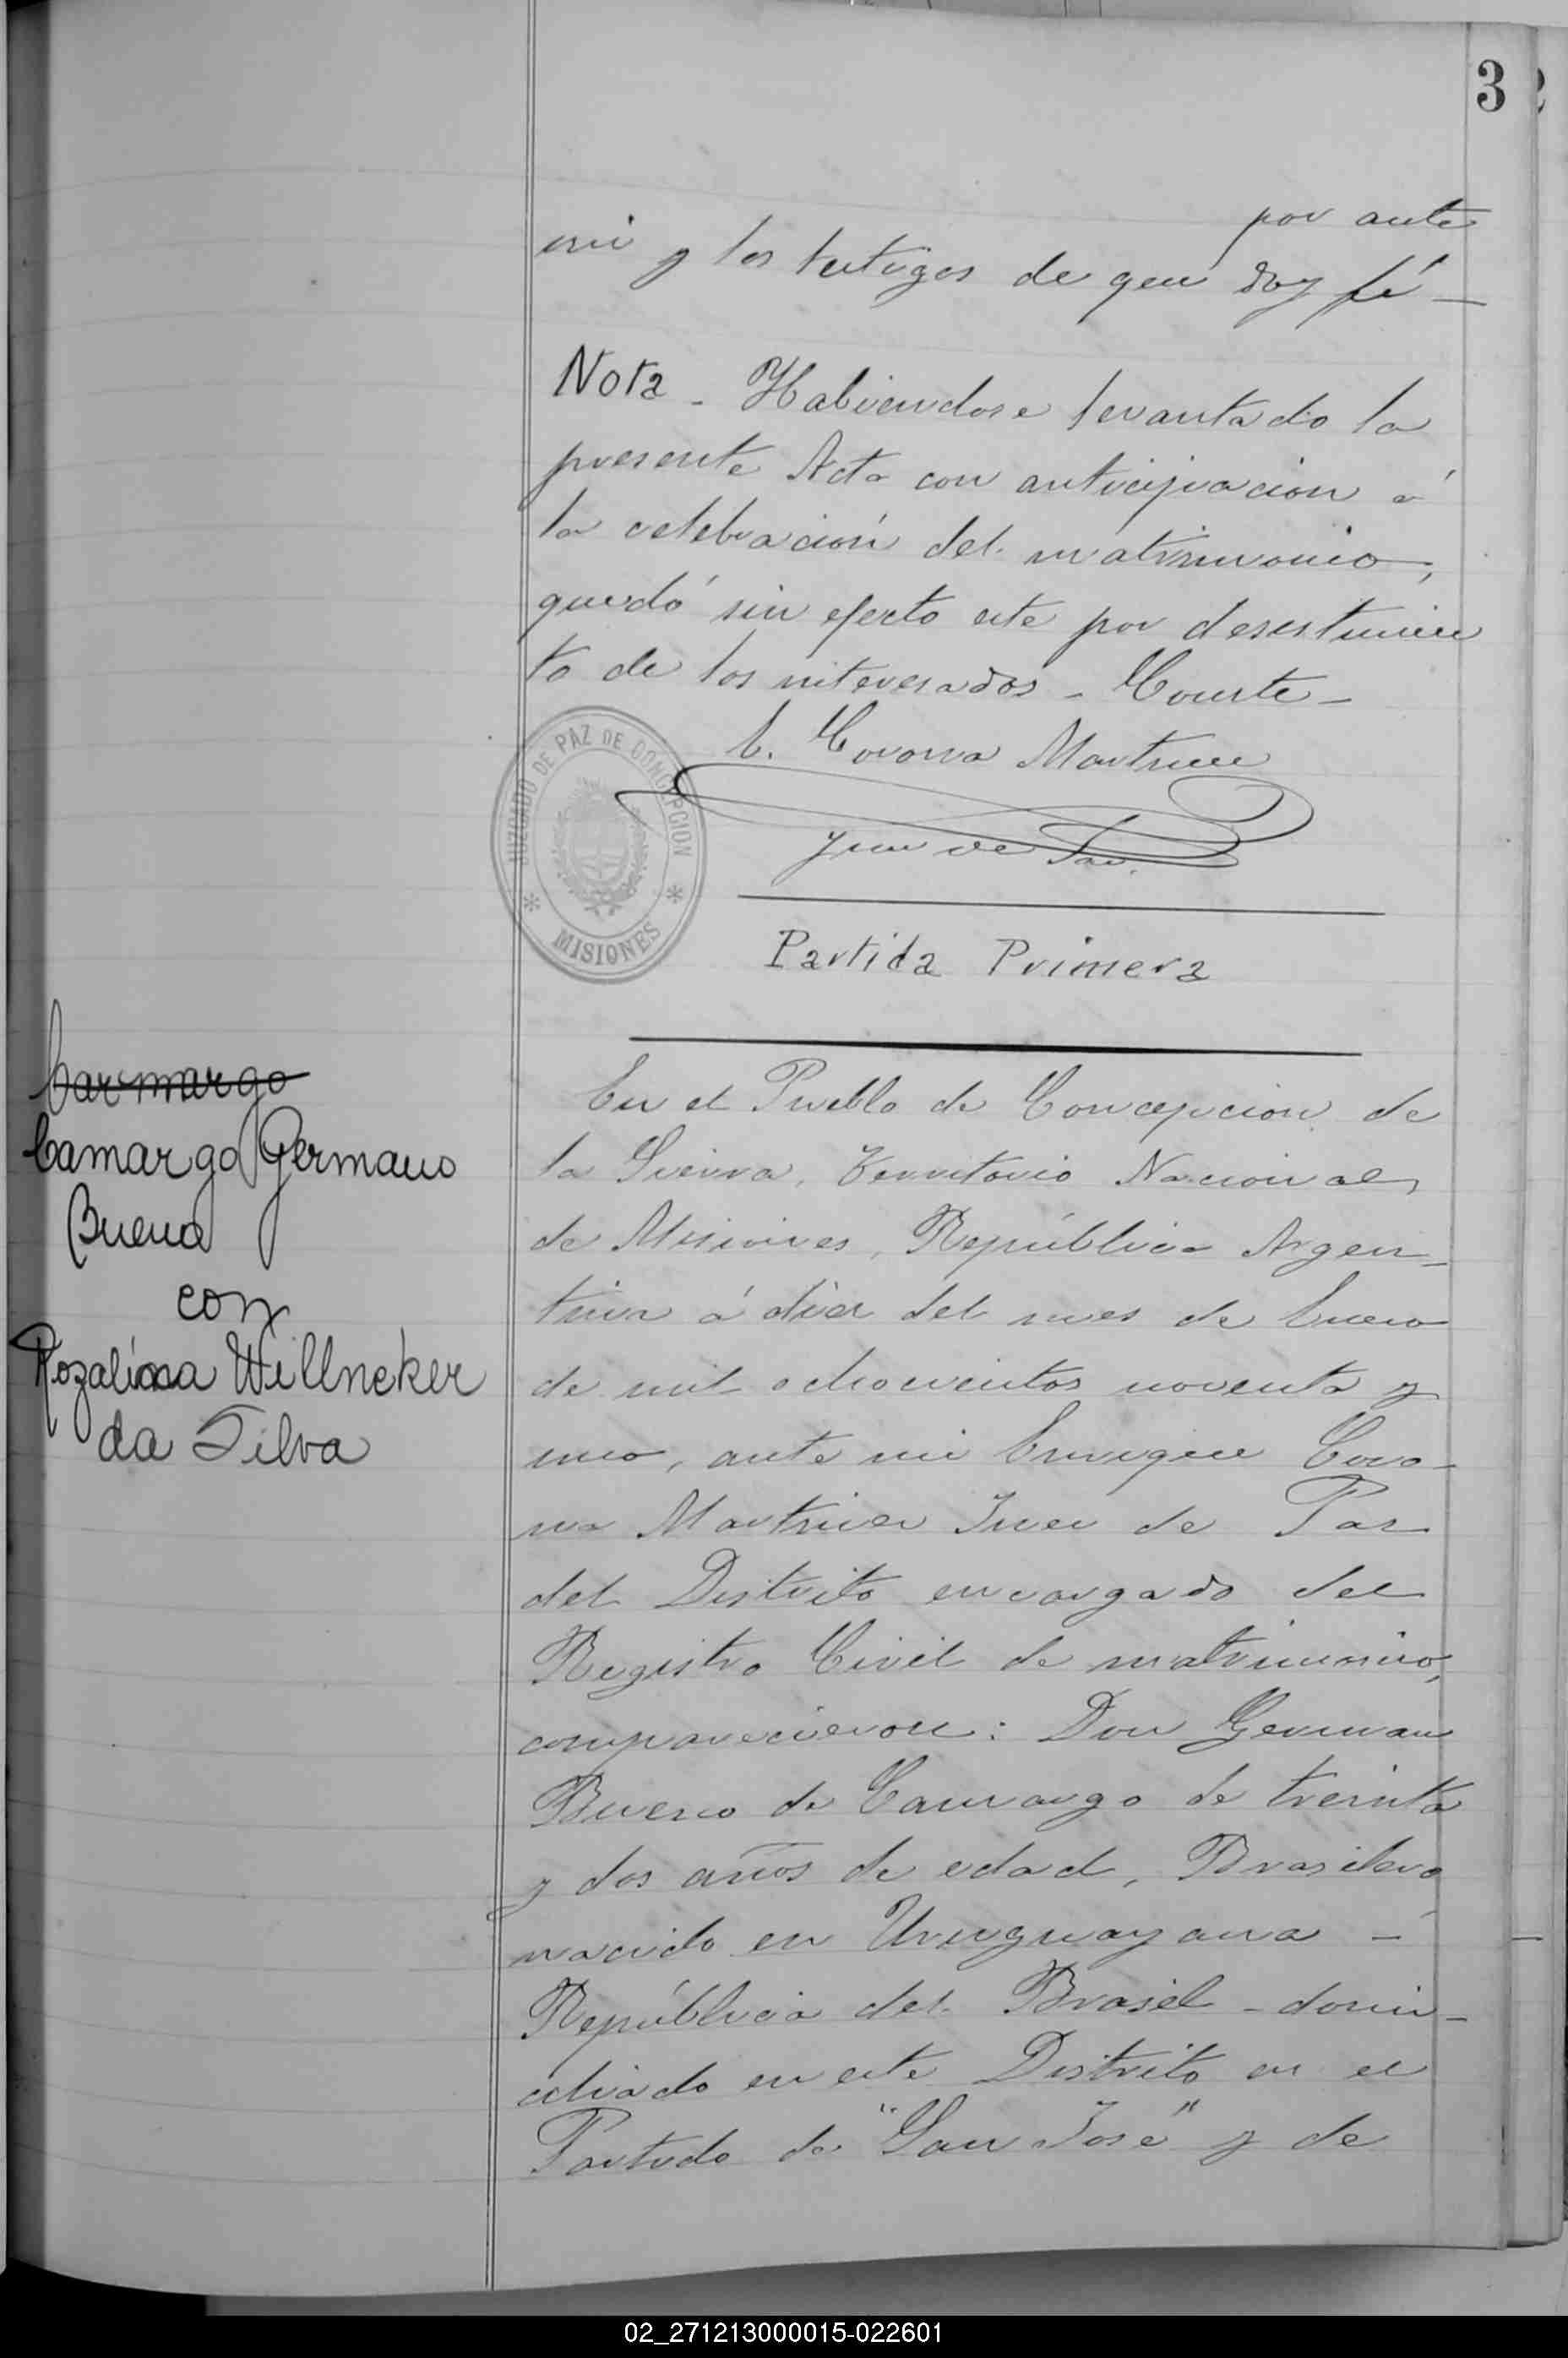 3
por ante
mi y los testigos de que doy fé —
Nota - Habiendose levantado la
presente Acta con anticipacion á
la celebración del matrimonio,
quedó sin efecto este por desestimien
to de los interesados - Conste -
E. Corona Martinez
Juez de Paz.
JUZGADO DE PAZ DE CONCEPCION
MISIONES
Partida Primera
En el Pueblo de Concepcion de
la Sierra, Territorio Nacional
de Misiones, República Argen-
tina á diez del mes de Enero
de mil ochocientos noventa y
uno, ante mi Enrique Coro-
na Martinez Juez de Paz
del Distrito encargado del
Registro Civil de matrimonio,
comparecieron: Don German
Bueno de Camargo de treinta
y dos años de edad, Brasilero
nacido en Uruguayana -
República del Brasil - domi-
ciliado en este Distrito en el
Partido de "San José" y de
Carmargo
Camargo Germano
Bueno
con
Rozalina Willneker
da Silva
02_271213000015-022601